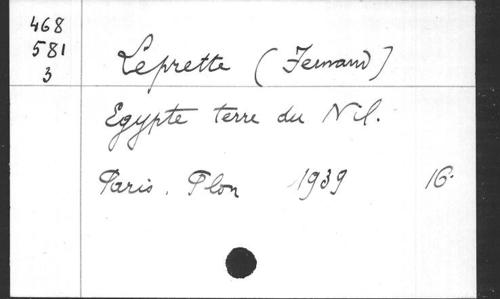 468
581
3
Leprette (Fernand)
Egypte terre du Nil.
Paris. Plon 1939 16.